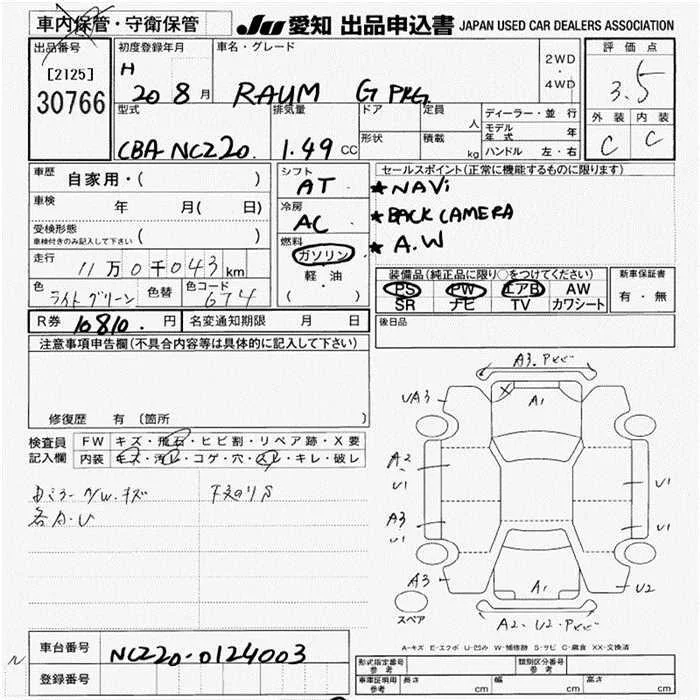 車内保管・守衛保管
JU 愛知 出品申込書 JAPAN USED CAR DEALERS ASSOCIATION
出品番号
[2125]
30766
初度登録年月
H
20 8月
車名・グレード
RAUM G PKG
2WD
・
4WD
評価点
3.5
外装 内装
C C
型式
CBA-NCZ20.
排気量
1.49 CC
ドア
形状
定員
人
積載
kg
ディーラー・並行
モデル年式 年
ハンドル 左・右
車歴 自家用・( )
車検 年 月( 日)
受検形態
車検付きのみ記入して下さい ( )
走行 11万0千043km
色 ライトグリーン 色替 色コード 674
シフト
AT
冷房
AC
燃料
ガソリン
・
軽・油
( ・ )
セールスポイント(正常に機能するものに限ります)
★NAVi
★BACK CAMERA
★A.W
装備品(純正品に限り○をつけてください)
PS PW エアB AW
SR ナビ TV カワシート
新車保証書
有・無
R券 10810. 円 名変通知期限 月 日
後日品
注意事項申告欄(不具合内容等は具体的に記入して下さい)
修復歴 有 〔箇所 〕
検査員
記入欄
FW キズ・飛石・ヒビ割・リペア跡・X要
内装 キズ・汚レ・コゲ・穴・スレ・キレ・破レ
各A・U
A1
UA3
A2
U1
A3
U1
A3
U1
U1
U2
A1
スペア
A-キズ E-エクボ U-凹み W-補修跡 S-サビ C-腐食 XX-交換済
車台番号 NCZ20-0124003
登録番号
形式指定番号
参考
類別区分番号
参考
車庫証明用
参考
長さ cm 幅 cm 高さ cm